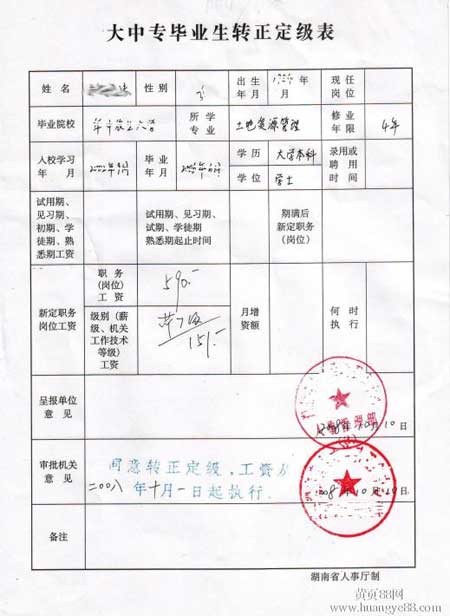 大中专毕业生转正定级表
姓 名 性别 出生年月 年 月 现任岗位
毕业院校 所学专业 土地资源管理 修业年限 4年
入校学习年月 毕业年月 学历 大学本科 录用或聘用时间
学位 学士
试用期、见习期、初期、学徒期、熟悉期工资 试用期、见习期、试期、学徒期熟悉期起止时间 期满后新定职务(岗位)
新定职务岗位工资 职务(岗位)工资 590.- 月增资额 何时执行
级别(薪级、机关工作技术等级)工资 151.-
呈报单位意见
2008年10月10日
审批机关意见 同意转正定级,工资从
二00八年十月一日起执行. 2008年10月10日
备注
湖南省人事厅制
黄页88网
www.huangye88.com